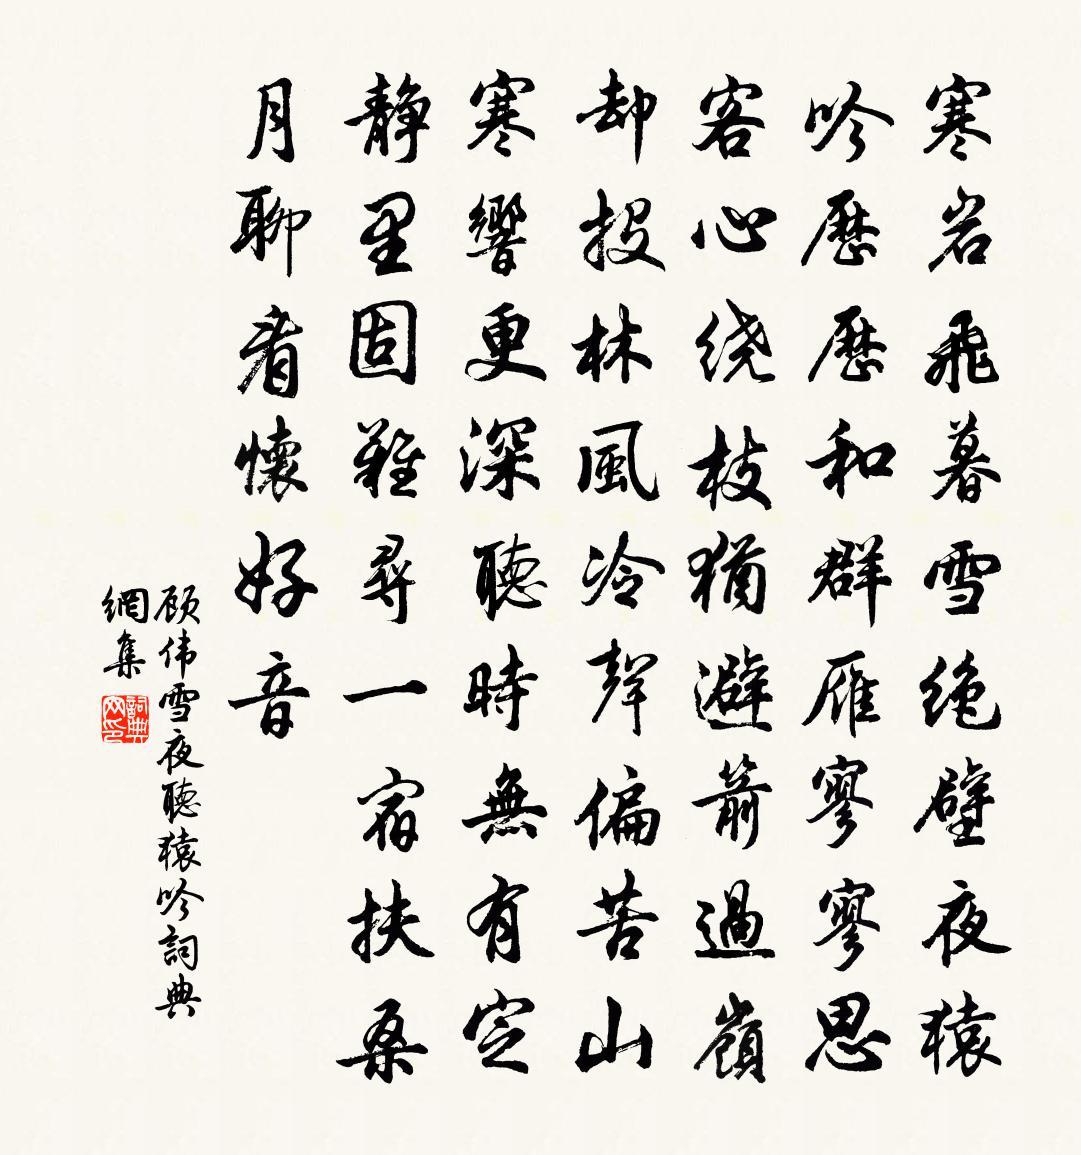 寒岩飛暮雪绝壁夜猿
吟歷歷和群雁寥寥思
客心绕枝猶避箭過嶺
却投林風冷聲偏苦山
寒響更深聽時無有定
静里固難尋一宿扶桑
月聊看懷好音
顾伟雪夜聽猿吟詞典
網集
詞典
网印